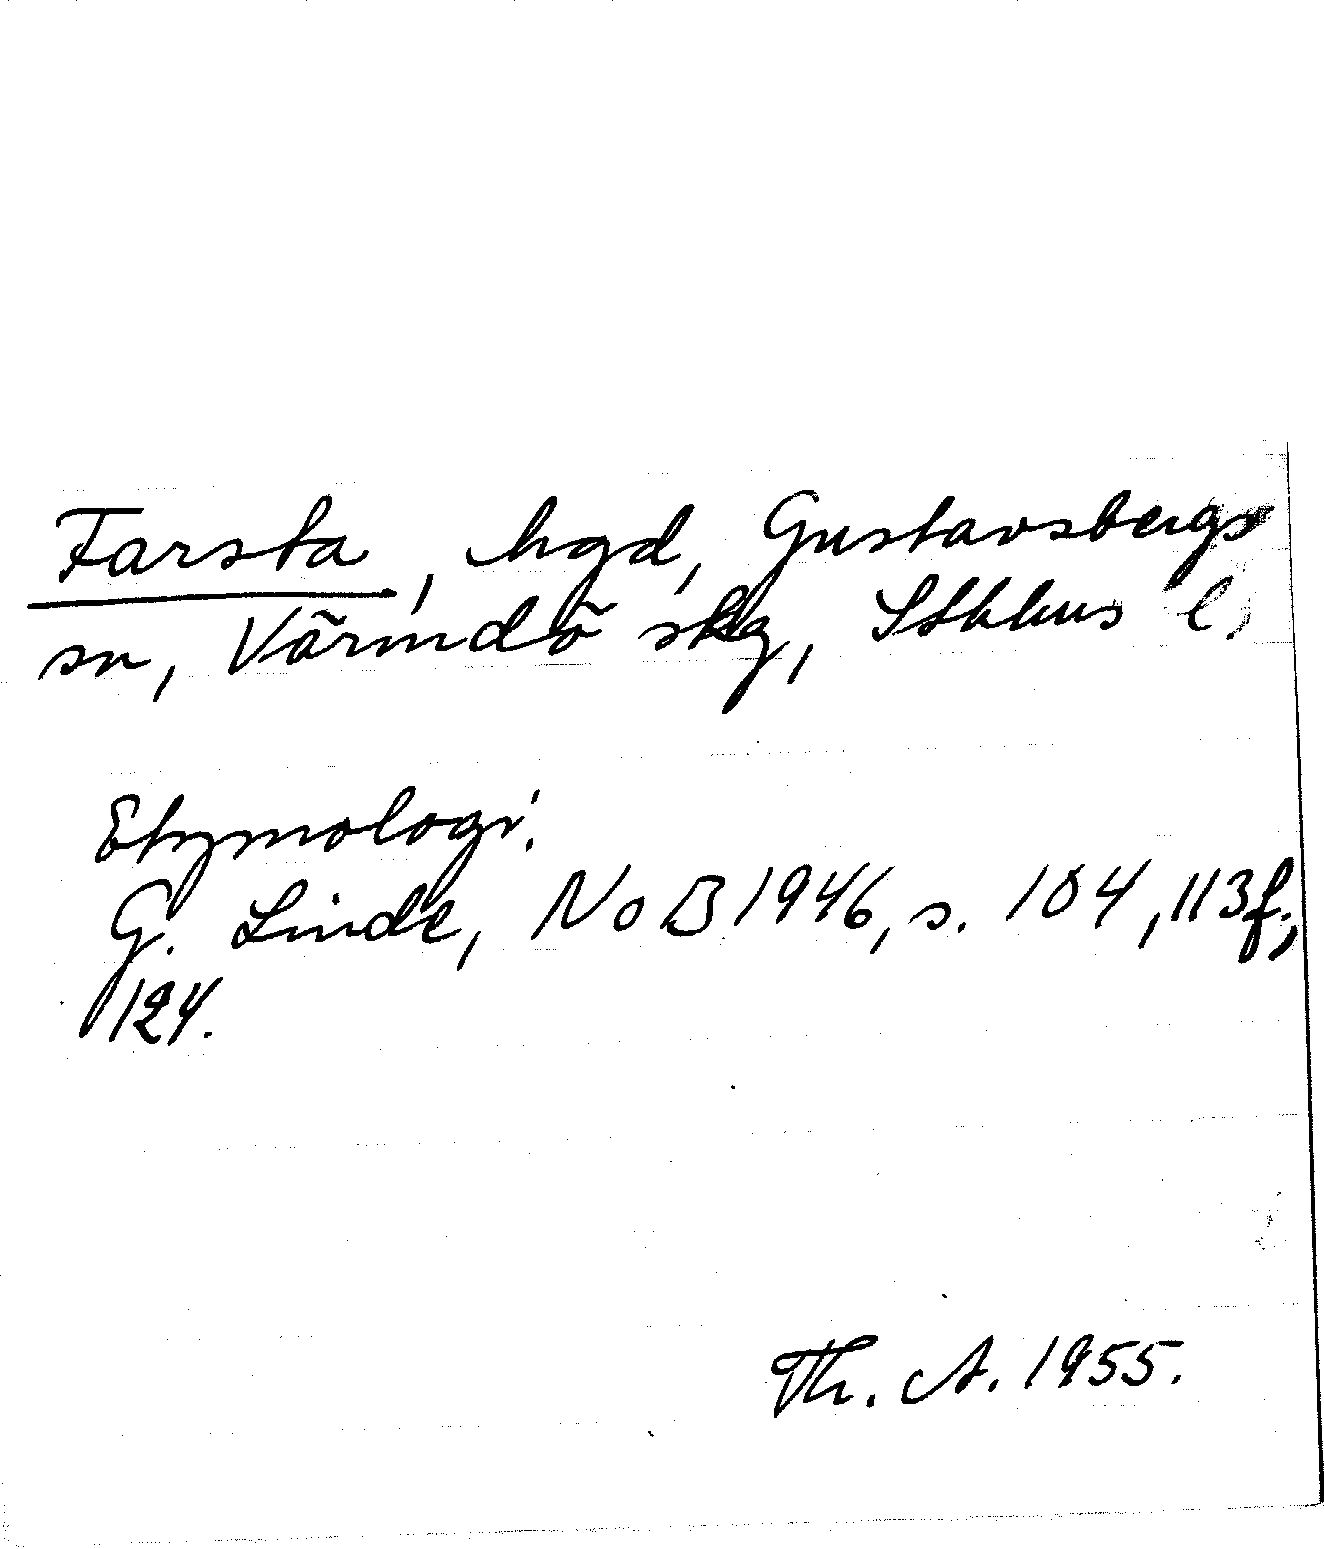 Farsta, hgd, Gustavsbergs
sn, Värmdö skg, Sthlms l,
Etymologi.
G. Linde, NoB 1946, s. 104, 113f.,
124.
Th. A. 1955.